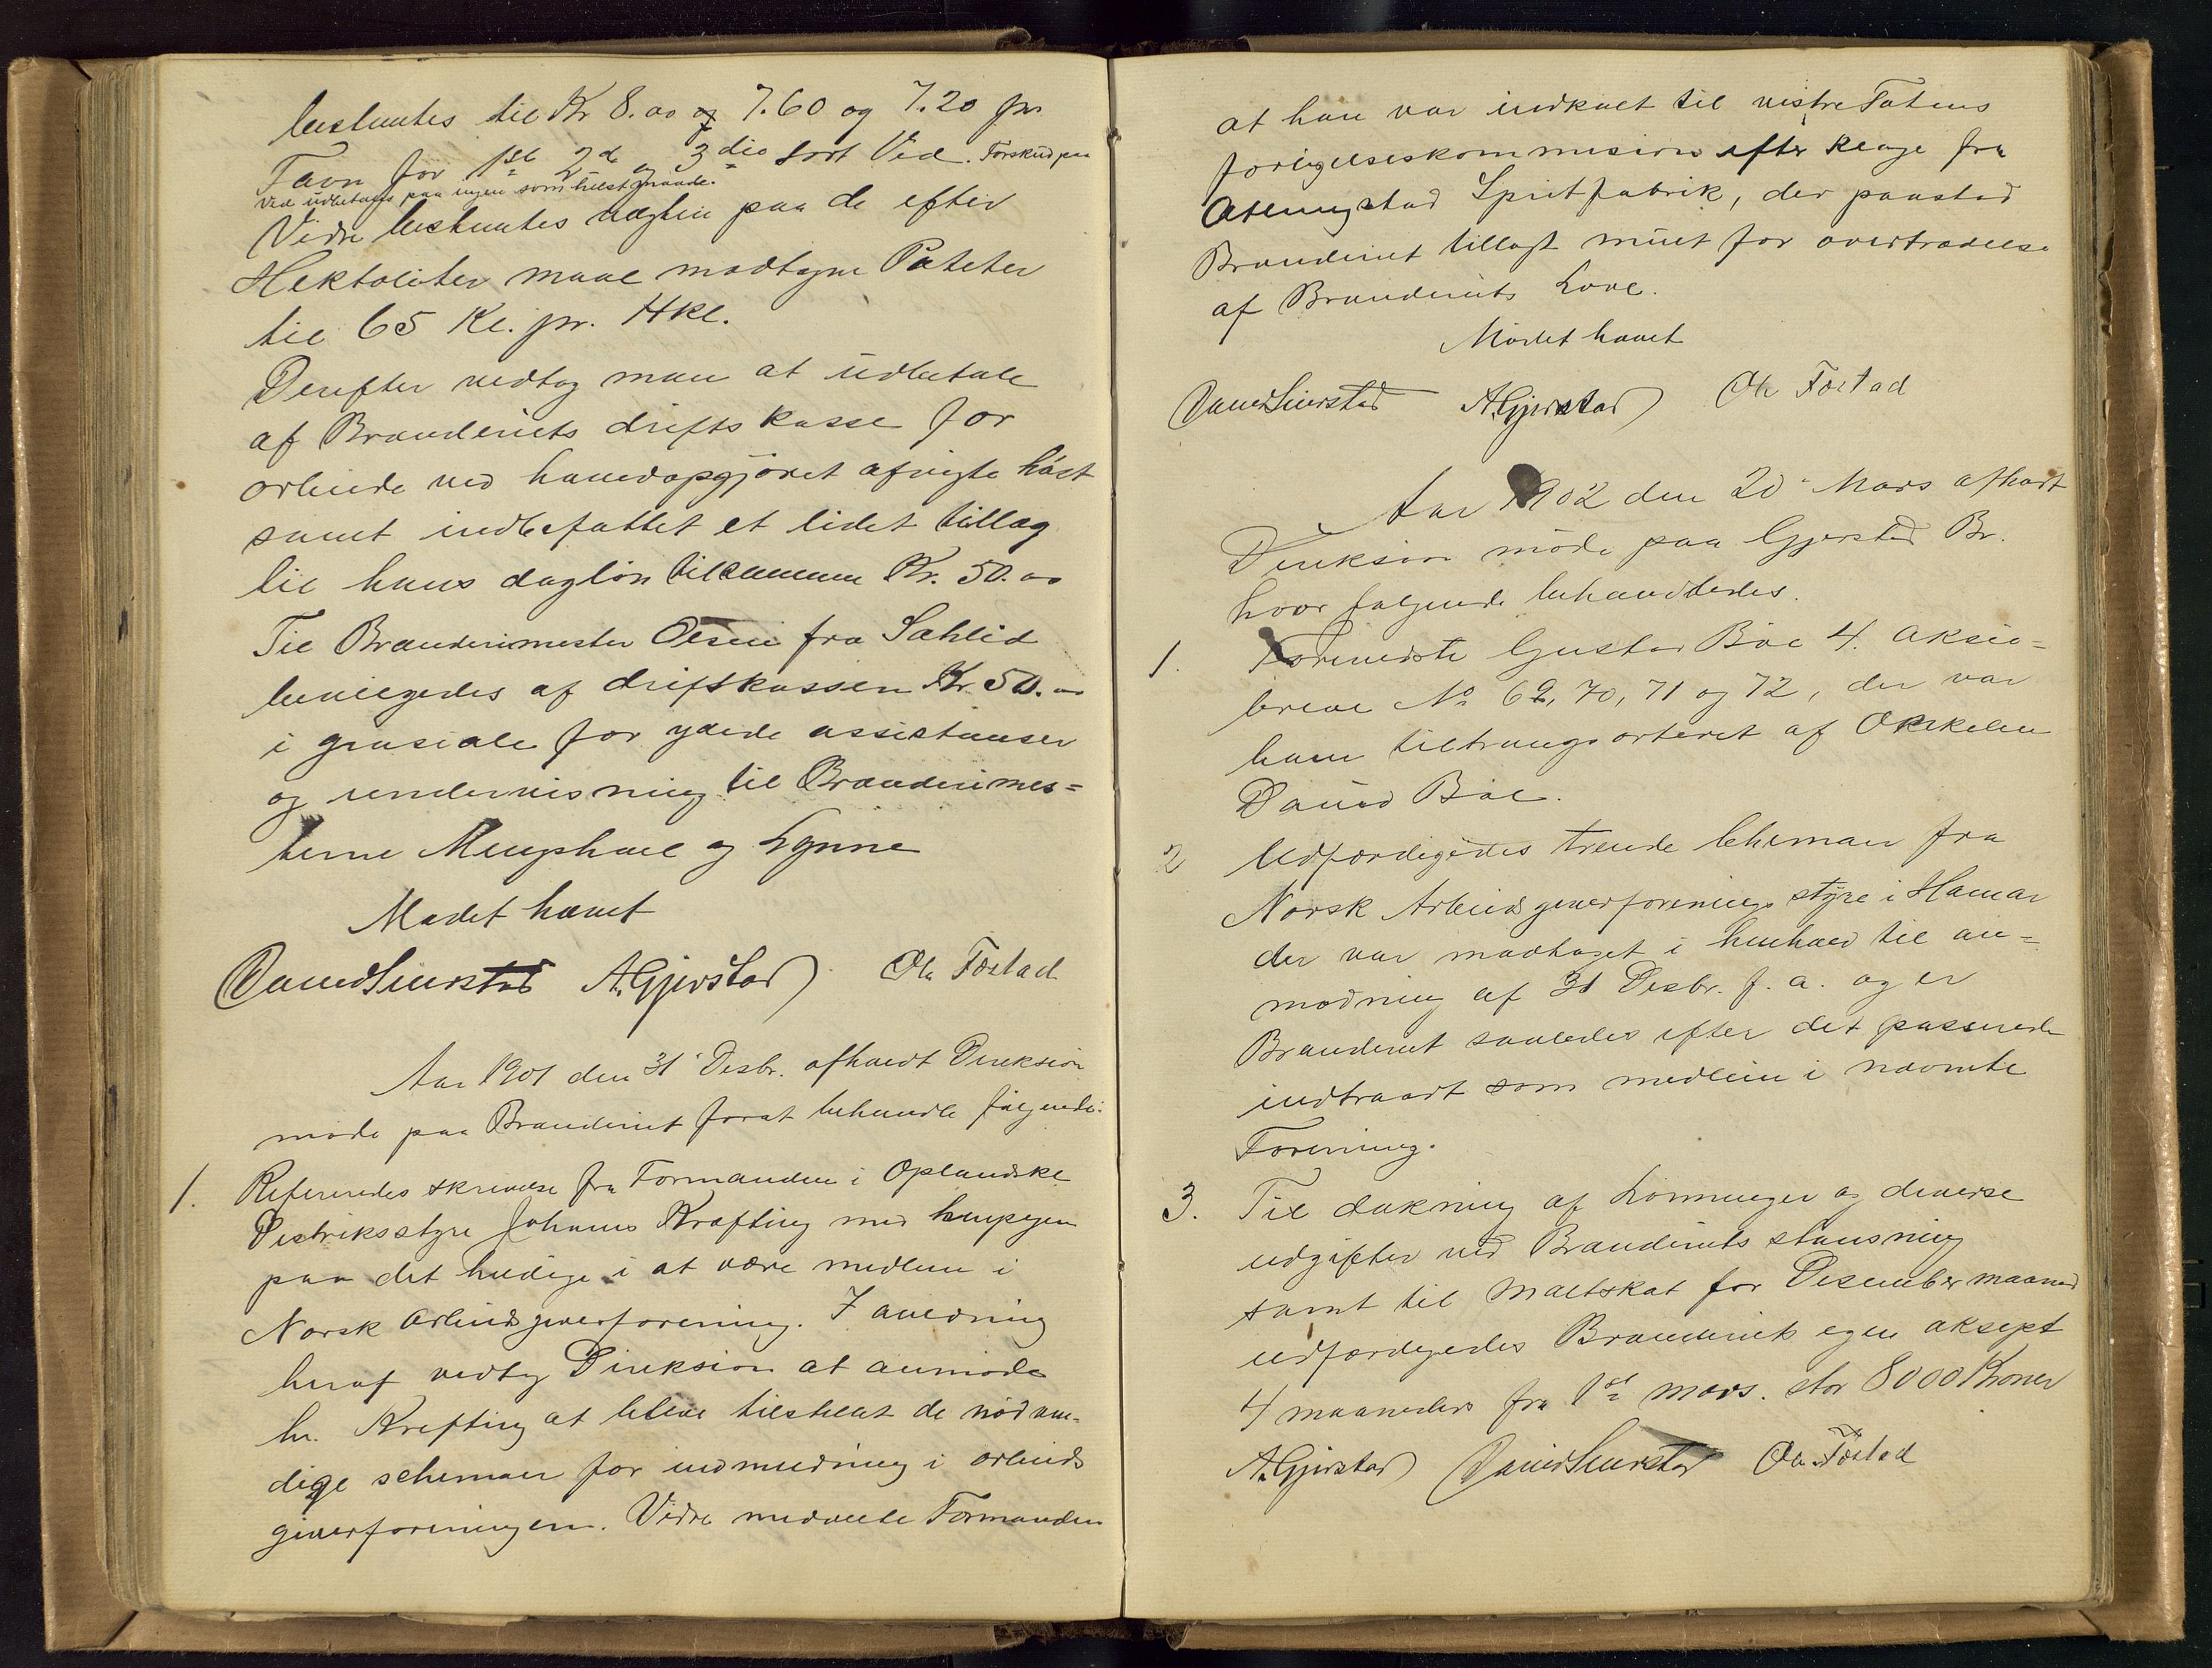 bestemtes til Kr 8.00 og 7.60 og 7.20 pr.
Favn for 1ste 2d og 3die sort Ved. Forskud paa
Ved udbetales paa ingen somhelst maade.
Vidre bestemtes vægten paa de efter
Hektoliter maal modtagne Poteter
til 65 Kl. pr. Hkl.
Derefter vedtog man at udbetale
af Brænderiets driftskasse for
arbeide ved hovedopgjøret afvigte høst
samt indbefattet et lidet tillæg
til hans dagløn tilsammen Kr. 50.00
Til Brænderimester Olsen fra Sahlid
bevilgedes af driftskassen Kr 50.00
i grasiale for ydede assistanser
og undervisning til Brænderimes=
terne Mengshoel og Lynne
Mødet hævet
A. Gjerstad Ole Føstad
Aar 1901 den 31 Desbr. afholdt Direksion
møde paa Brænderiet forat behandle følgende:
1. Refereredes skrivelse fra Formanden i Oplandske
Distriksstyre Johannes Krefting med henpegen
paa det heldige i at være medlem i
Norsk arbeidsgiverforening. I anledning
heraf vedtog Direksion at anmode
hr. Krefting at blive tilstillet de nødven-
dige schemaer for indmeldning i arbeids
giverforeningen. Vidre meddelte Formanden
at han var indkalt til vestre Totens
forligelseskommission efter klage fra
Atlungstad Spritfabrik, der paastod
Brænderiet tillagt mulct for overtrædelse
af Brænderiets Love.
Mødet hævet
A. Gjerstad Ole Føstad
Aar 1902 den 20 Mars afholdt
Direksion møde paa Gjerstad Br.
hvor følgende behandledes.
1. Gustav Bøe 4. aksie=
breve No 69, 70, 71 og 72, der var
ham tiltransporteret af Onkelen
David Bøe.
2 Udfærdigedes trende schemaer fra
Norsk Arbeidsgiverforenings styre i Hamar
der var modtaget i henhold til an=
modning af 31 Desbr. f. a. og er
Brænderiet saaledes efter det passerede
indtraadt som medlem i nævnte
Forening.
3. Til dækning af Lønninger og diverse
udgifter ved Brænderiets stansning
samt til maltskat for Desember maaned
udfærdigedes Brænderiets egen aksept
4 maaneders fra 1st mars. stor 8000 Kroner
A. Gjerstad Ole Føstad